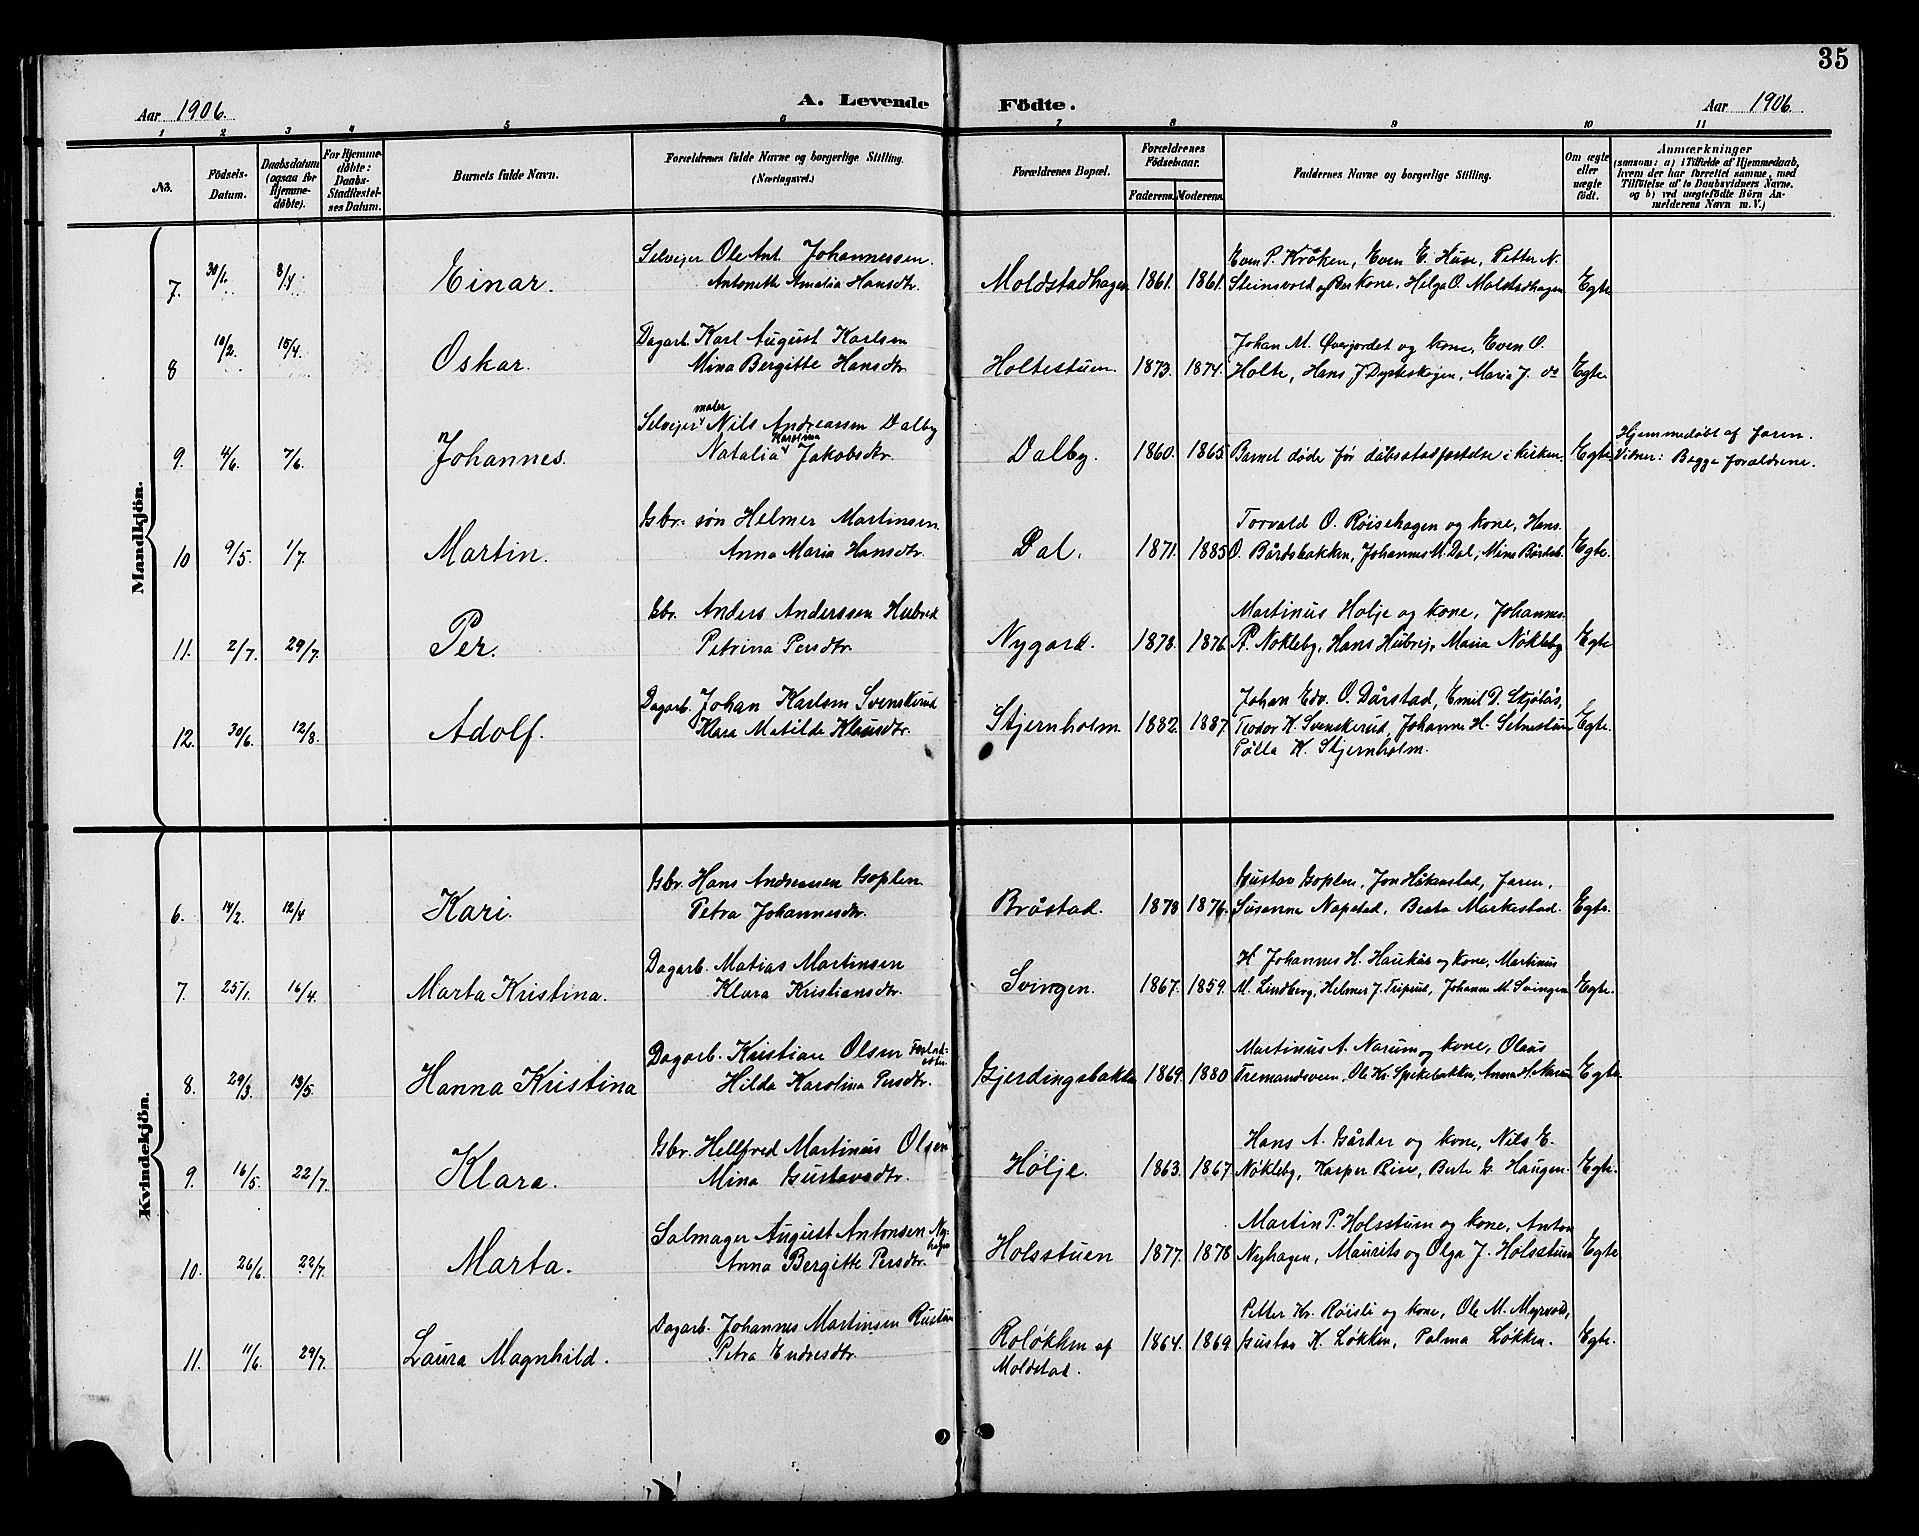 35
Aar 1906. A. Levende Födte. Aar 1906.
1 2 3 4 5 6 7 8 9 10 11
No.
Födsels-Datum.
Daabsdatum (ogsaa for Hjemme-döbte).
For Hjemme-döbte: Daabs-Stadfæstel-ses Datum.
Barnets fulde Navn.
Forældrenes fulde Navne og borgerlige Stilling. (Næringsvei.)
Forældrenes Bopæl.
Forældrenes Födselsaar.
Faderens. Moderens.
Faddernes Navne og borgerlige Stilling.
Om ægte eller uægte födt.
Anmærkninger (saasom: a) i Tilfælde af Hjemmedaab, hvem der har forrettet samme, med Tilföielse af to Daabsvidners Navne, og b) ved uægtefödte Börn An-melderens Navn m. V.)
Mandkjön.
7. 30/1. 8/4 Einar. Selveier Ole Ant. Johannessen. Antonette Amalia Hansdtr. Moldstadhagen 1861. 1861. Even P. Kröken, Even E. Huse, Petter N. Steinsvold og kone, Helga O. Moldstadhagen Egte
8 10/2. 15/4. Oskar. Dagarb. Karl August Karlsen Mina Bergitte Hansdtr. Holtestuen. 1873. 1874. Johan M. Øverjordet og kone, Even O. Holte, Hans J. Dysteskogen, Maria J. do Egte.
9. 4/6. 7/6. Johannes. Selveier maler Nils Andreassen Dalby Natalia Karolina Jakobsdtr. Dalby. 1860. 1865 Barnet døde før dåbsstadfæstelse i kirken. Egte Hjemmedøbt af faren. Vidner: Begge forældrene.
10 9/5. 1/7. Martin. Gbr.søn Helmer Martinsen. Anna Maria Hansdtr. Dal. 1871. 1885 Torvald O. Røisehagen og kone, Hans O. Bårdsbakken, Johannes M. Dal, Mina Bårdsb. Egte.
11. 2/7. 29/7. Per. Gbr. Anders Anderssen Petrina Persdtr. Nygard. 1878. 1876. Martinus Holje og kone, Johannes P. Nøkleby, Hans Maria Nøkleby Egte
12. 30/6. 12/8. Adolf. Dagarb. Johan Karlsen Svenskerud Klara Matilde Klausdtr. Stjernholm 1882. 1887. Johan Edv. O. Dårstad, Emil D. Skjølås, Teodor K. Svenskerud, Johanne H. Setnestuen Pølla K. Stjernholm. Egte.
Kvindekjön.
6. 14/2. 12/4 Kari. Gbr. Hans Andreassen Goplen Petra Johannesdtr. Bråstad. 1878 1876. Gustav Goplen, Jon Håkenstad, faren, Susanne Napstad, Beata Markestad. Egte.
7. 25/1. 16/4. Marta Kristina. Dagarb. Matias Martinsen Klara Kristiansdtr. Svingen. 1867. 1859. H Johannes H. Haukås og kone, Martinus M. Lindberg, Helmer J. Triprud, Johanne M. Svingen Egte.
8. 29/3. 13/5. Hanna Kristina Dagarb. Kristian Olsen Hilda Karolina Persdtr. Gjerdingsbakken 1869. 1880 Martinus A. Narum og kone, Olaus Tremandsveen, Ole Kr. Spikebakken, Anna H. Narum Egte
9. 16/5. 22/7. Klara. Gbr. Hellfred Martinus Olsen Mina Gustavsdtr. Hølje. 1863. 1867. Hans A. Gårder og kone, Nils E. Nøkleby, Kasper Rise, Berte G. Haugen. Egte.
10. 26/6. 22/7. Marta. Salmager August Antonsen Nyhagen Anna Bergitte Persdtr. Holsstuen 1877. 1878 Martin P. Holsstuen og kone, Anton Nyhagen, Maurits og Olga J. Holsstuen Egte.
11. 11/6. 29/7. Laura Magnhild. Dagarb. Johannes Martinsen Rustad Petra Endresdtr. Roløkken af Moldstad. 1864. 1869 Petter Kr. Røisli og kone, Ole M. Myrvold, Gustav K. Løkken, Palma Løkken. Egte.